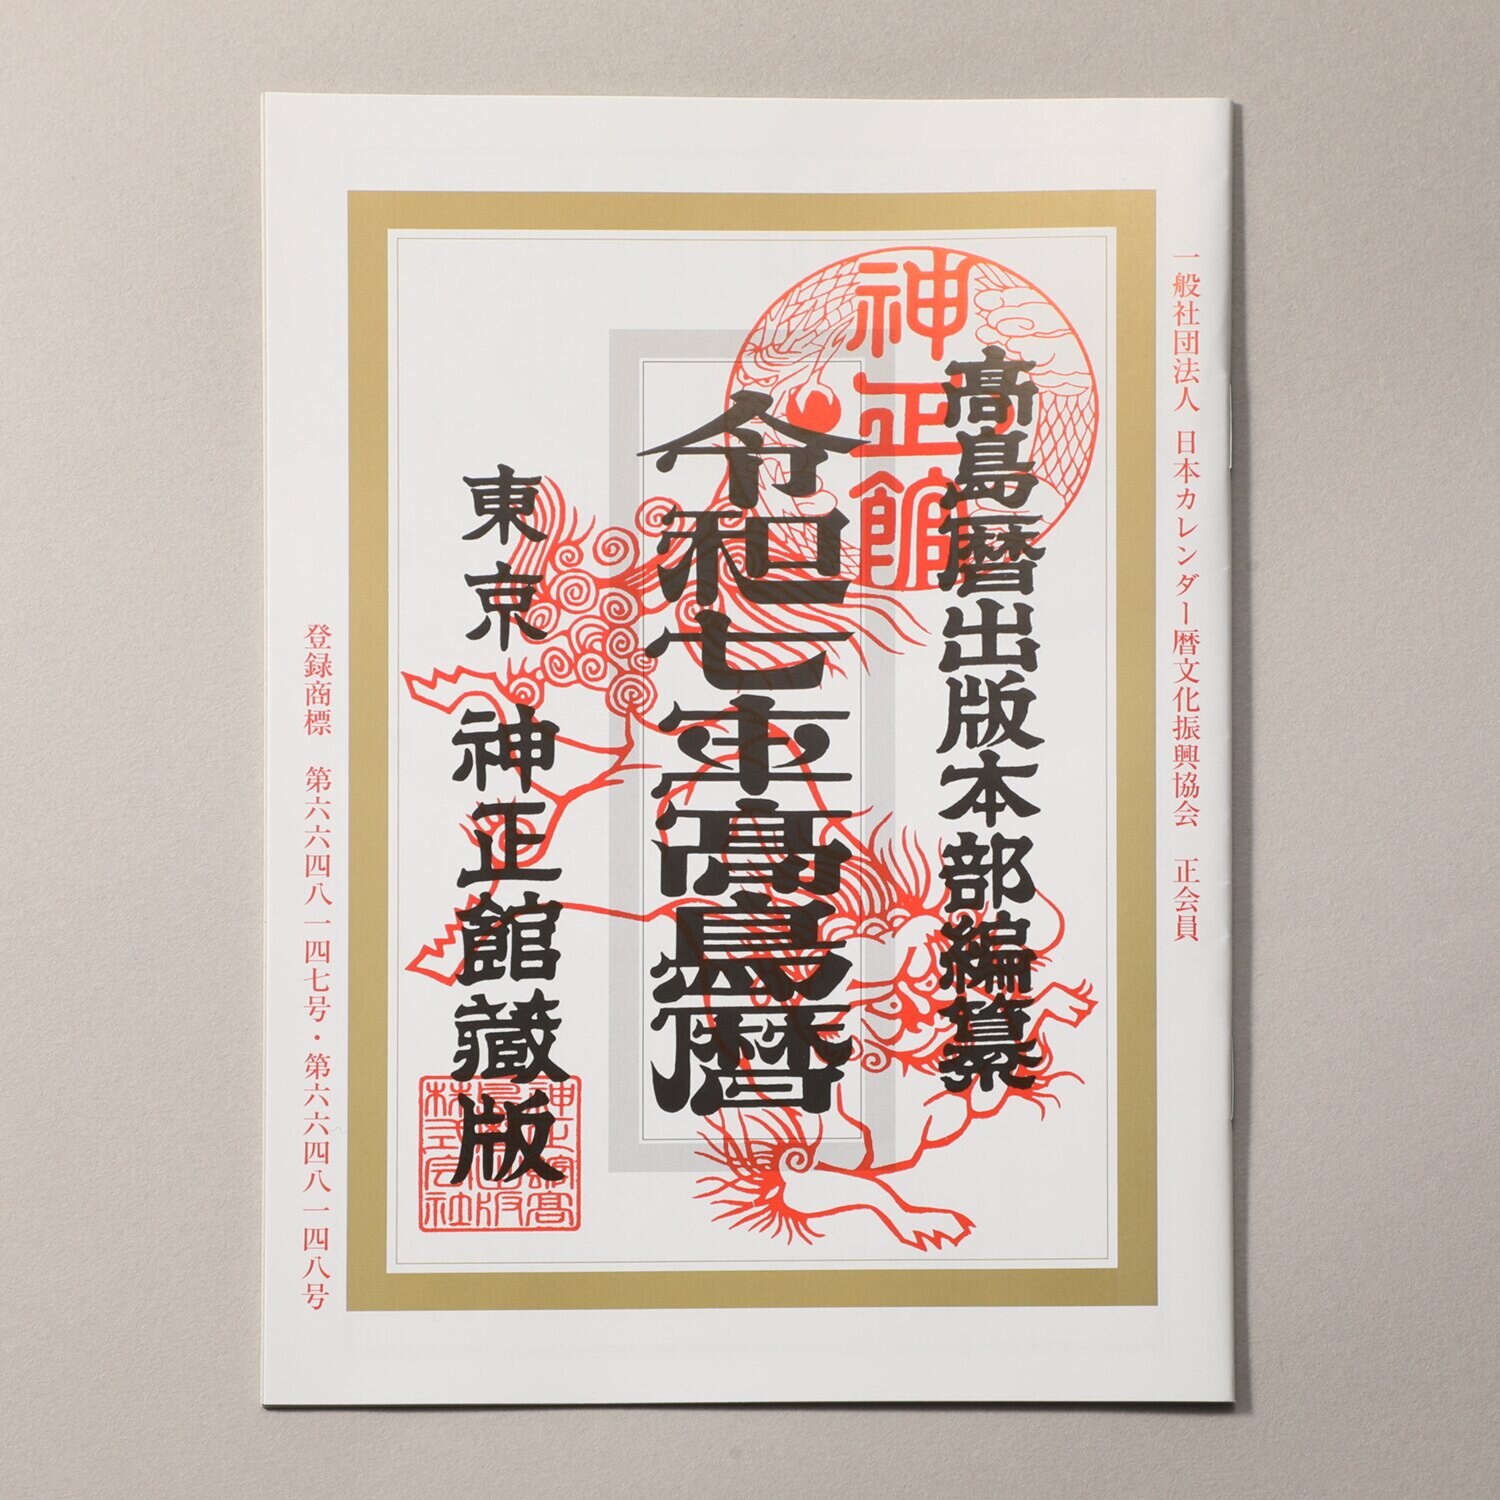 一般社団法人 日本カレンダー暦文化振興協会 正会員
神正館
高島暦出版本部編纂
令和七年高島暦
東京 神正館蔵版
神正館高島暦出版株式会社
登録商標 第六六四八一四七号・第六六四八一四八号